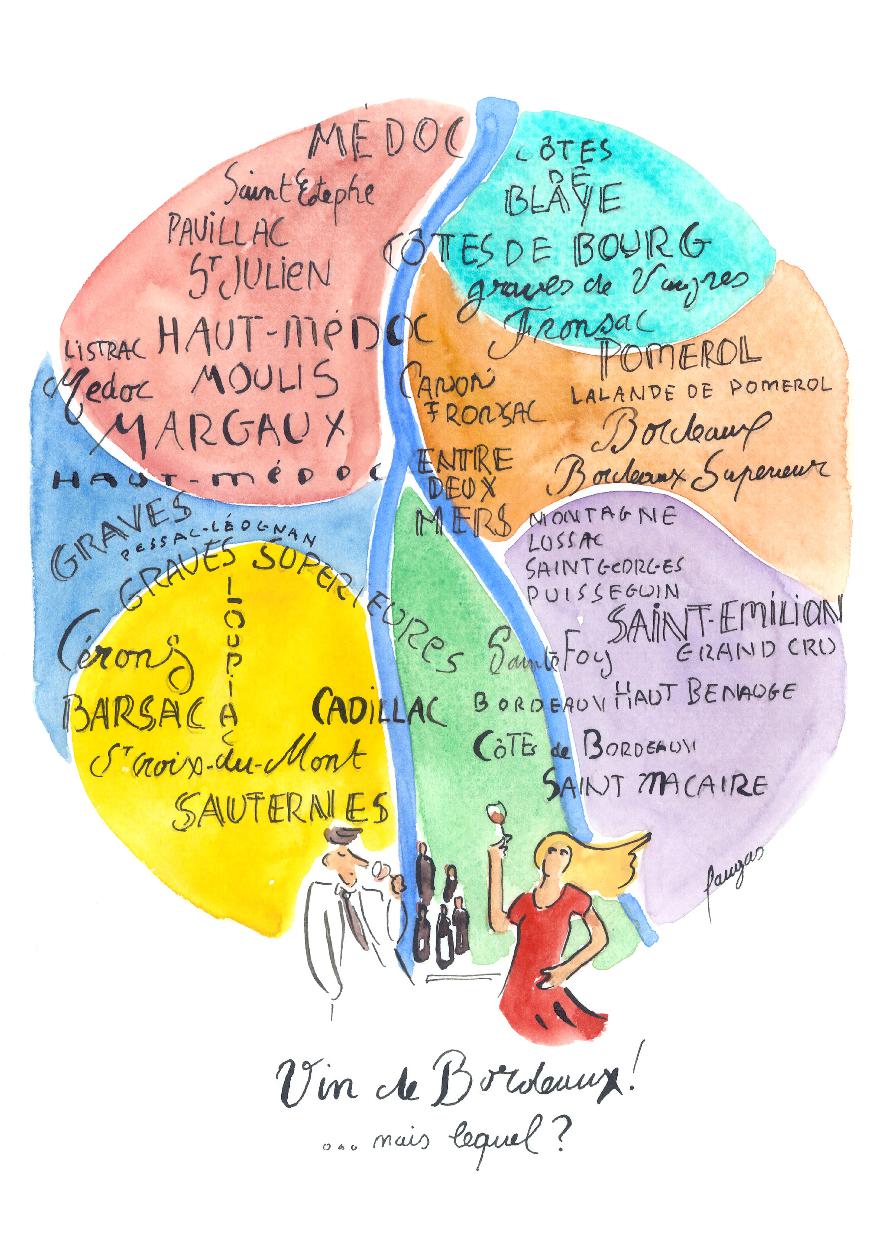 MÉDOC
Saint Estephe
PAUILLAC
ST JULIEN
HAUT-MÉDOC
LISTRAC
Medoc
MOULIS
MARGAUX
HAUT-MÉDOC
CÔTES
DE
BLAYE
CÔTES DE BOURG
graves de Vayres
Fronsac
POMEROL
LALANDE DE POMEROL
CANON
FRONSAC
Bordeaux
Bordeaux Superieur
ENTRE
DEUX
MERS
GRAVES
PESSAC-LÉOGNAN
GRAVES SUPERIEURES
LOUPIAC
Cérons
BARSAC
CADILLAC
St Croix-du-Mont
SAUTERNES
MONTAGNE
LUSSAC
SAINT GEORGES
PUISSEGUIN
SAINT-EMILION
GRAND CRU
Sainte Foy
BORDEAUX HAUT BENAUGE
CÔTES de BORDEAUX
SAINT MACAIRE
Vin de Bordeaux!
... mais lequel ?